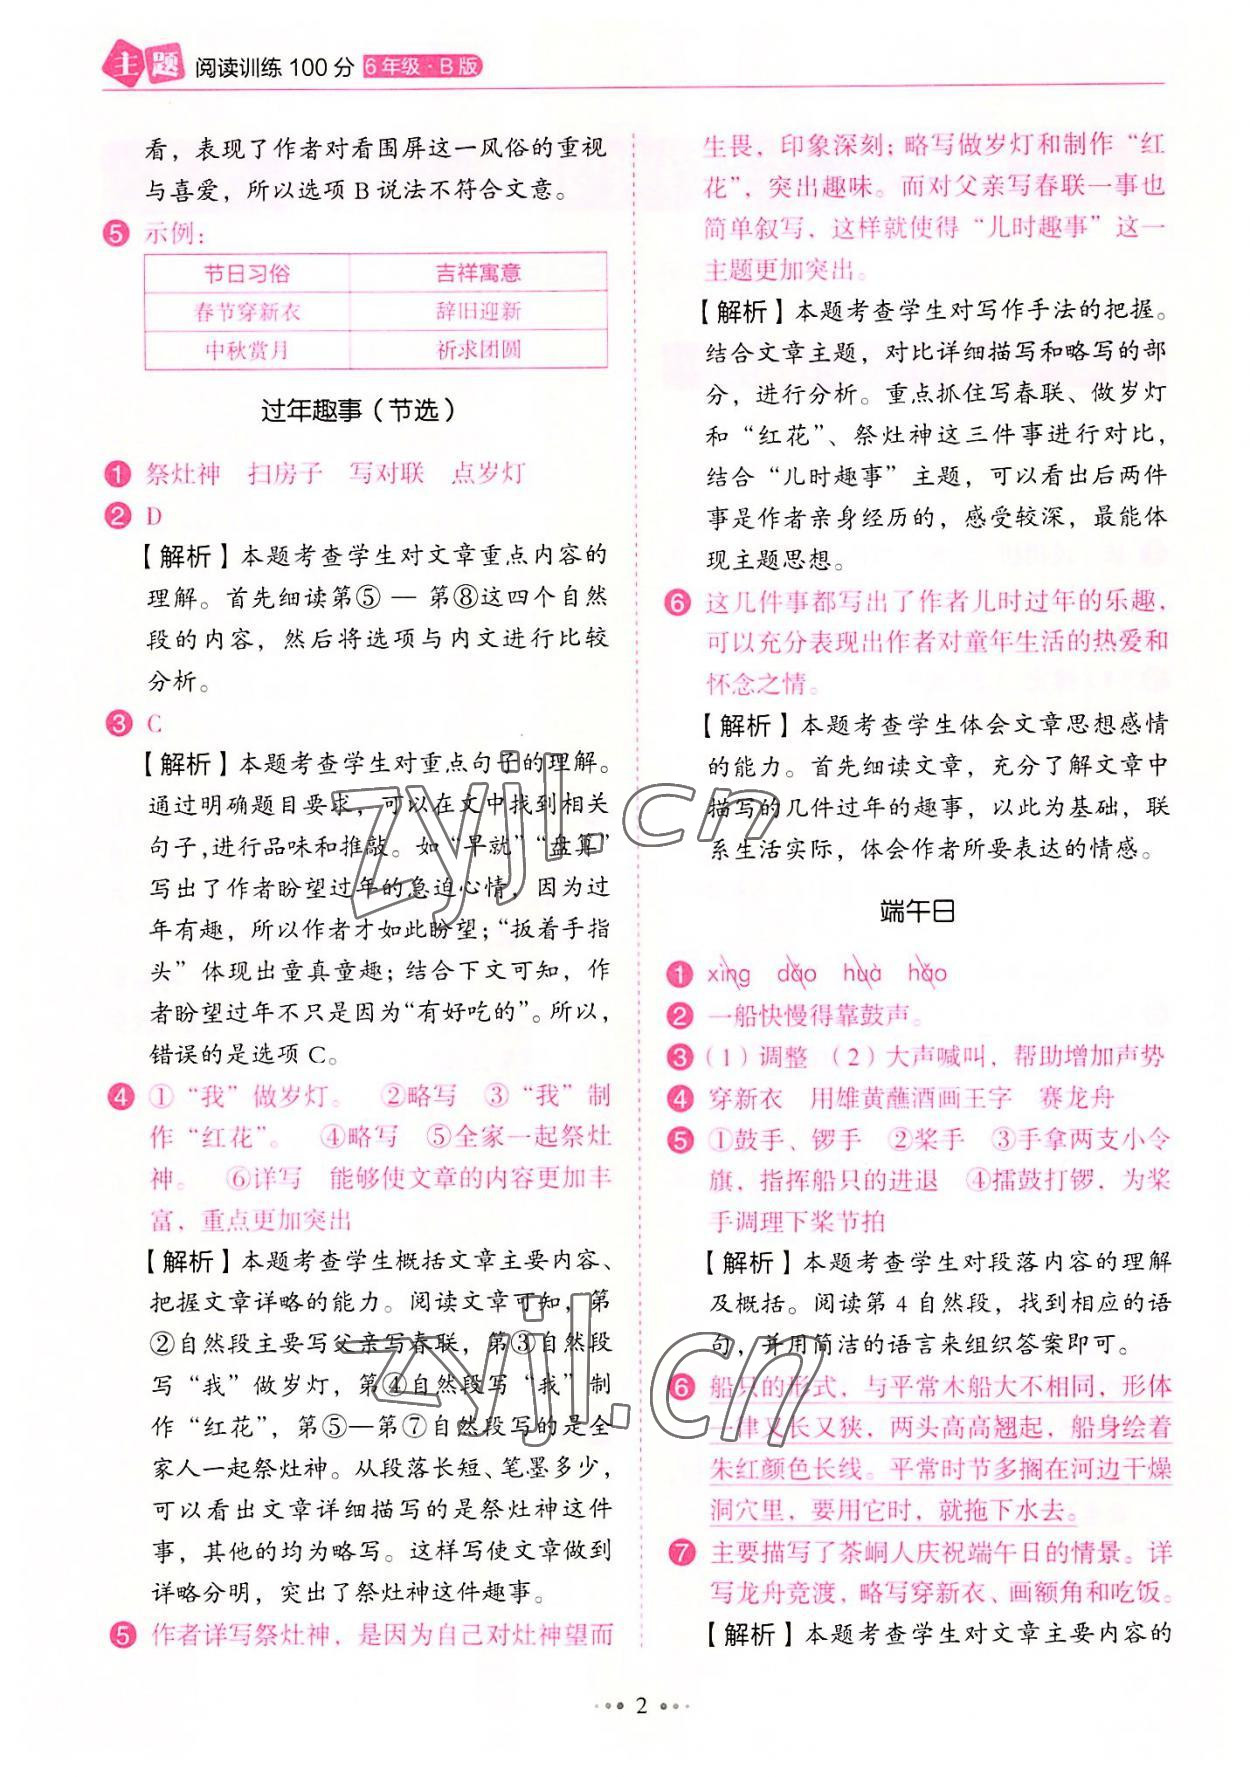 主题 阅读训练100分 6年级·B版
看，表现了作者对看围屏这一风俗的重视
与喜爱，所以选项B说法不符合文意。
5 示例：
节日习俗 吉祥寓意
春节穿新衣 辞旧迎新
中秋赏月 祈求团圆
过年趣事（节选）
1 祭灶神 扫房子 写对联 点岁灯
2 D
【解析】本题考查学生对文章重点内容的
理解。首先细读第⑤—第⑧这四个自然
段的内容，然后将选项与内文进行比较
分析。
3 C
【解析】本题考查学生对重点句子的理解。
通过明确题目要求，可以在文中找到相关
句子,进行品味和推敲。如“早就”“盘算”
写出了作者盼望过年的急迫心情，因为过
年有趣，所以作者才如此盼望；“扳着手指
头”体现出童真童趣；结合下文可知，作
者盼望过年不只是因为“有好吃的”。所以，
错误的是选项C。
4 ①“我”做岁灯。 ②略写 ③“我”制
作“红花”。 ④略写 ⑤全家一起祭灶
神。 ⑥详写 能够使文章的内容更加丰
富，重点更加突出
【解析】本题考查学生概括文章主要内容、
把握文章详略的能力。阅读文章可知，第
②自然段主要写父亲写春联，第③自然段
写“我”做岁灯，第④自然段写“我”制
作“红花”，第⑤—第⑦自然段写的是全
家人一起祭灶神。从段落长短、笔墨多少，
可以看出文章详细描写的是祭灶神这件
事，其他的均为略写。这样写使文章做到
详略分明，突出了祭灶神这件趣事。
5 作者详写祭灶神，是因为自己对灶神望而
生畏，印象深刻；略写做岁灯和制作“红
花”，突出趣味。而对父亲写春联一事也
简单叙写，这样就使得“儿时趣事”这一
主题更加突出。
【解析】本题考查学生对写作手法的把握。
结合文章主题，对比详细描写和略写的部
分，进行分析。重点抓住写春联、做岁灯
和“红花”、祭灶神这三件事进行对比，
结合“儿时趣事”主题，可以看出后两件
事是作者亲身经历的，感受较深，最能体
现主题思想。
6 这几件事都写出了作者儿时过年的乐趣，
可以充分表现出作者对童年生活的热爱和
怀念之情。
【解析】本题考查学生体会文章思想感情
的能力。首先细读文章，充分了解文章中
描写的几件过年的趣事，以此为基础，联
系生活实际，体会作者所要表达的情感。
端午日
1 xìng dǎo huà hǎo
2 一船快慢得靠鼓声。
3 （1）调整 （2）大声喊叫，帮助增加声势
4 穿新衣 用雄黄蘸酒画王字 赛龙舟
5 ①鼓手、锣手 ②桨手 ③手拿两支小令
旗，指挥船只的进退 ④擂鼓打锣，为桨
手调理下桨节拍
【解析】本题考查学生对段落内容的理解
及概括。阅读第4自然段，找到相应的语
句，并用简洁的语言来组织答案即可。
6 船只的形式，与平常木船大不相同，形体
一律又长又狭，两头高高翘起，船身绘着
朱红颜色长线。平常时节多搁在河边干燥
洞穴里，要用它时，就拖下水去。
7 主要描写了茶峒人庆祝端午日的情景。详
写龙舟竞渡，略写穿新衣、画额角和吃饭。
【解析】本题考查学生对文章主要内容的
zyjl.cn
zyjl.cn
2